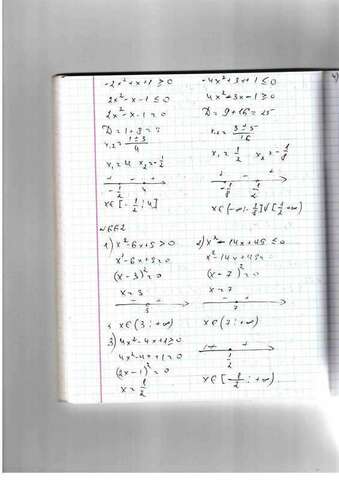 -2x²+x+1≥0
2x²-x-1≤0
2x²-x-1=0
D=1+8=9
x₁,₂=(1±3)/4
x₁=4 x₂=-1/2
+ - +
-1/2 4
x∈[-1/2;4]
-4x²+3x+1≤0
4x²-3x-1≥0
D=9+16=25
x₁,₂=(3±5)/16
x₁=1/2 x₂=-1/8
+ - +
-1/8 1/2
x∈(-∞;-1/8]∪[1/2;+∞)
№662
1) x²-6x+5>0
x²-6x+9=0
(x-3)²=0
x=3
- +
3
x∈(3;+∞)
2) x²-14x+45≤0
x²-14x+49=
(x-7)²=0
x=7
- +
7
x∈(7;+∞)
3) 4x²-4x+1≥0
4x²-4x+1=0
(2x-1)²=0
x=1/2
+
1/2
x∈[-1/2;+∞)